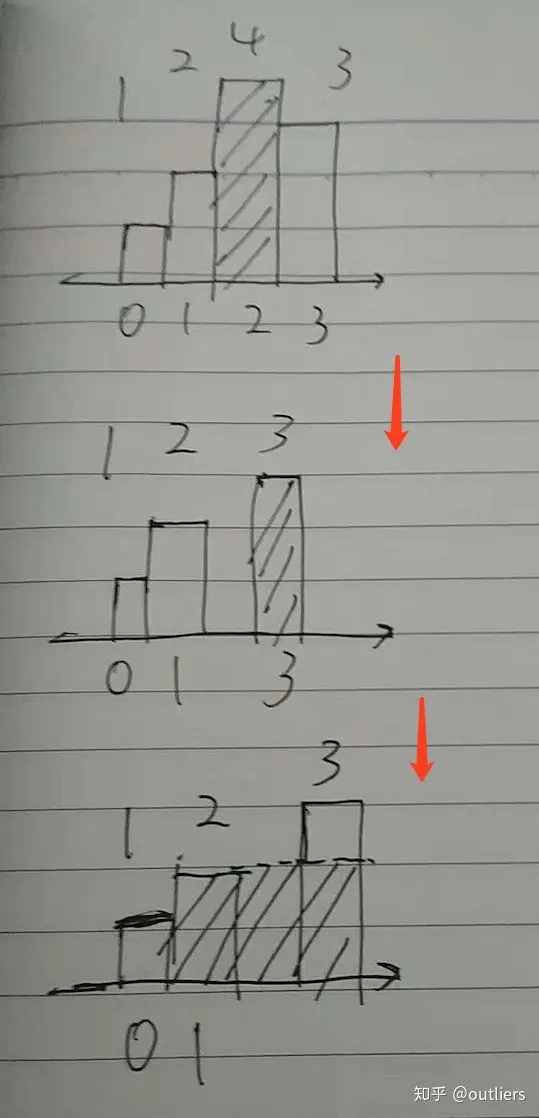 1 2 4 3
0 1 2 3
1 2 3
0 1 3
1 2 3
0 1
知乎 @outliers